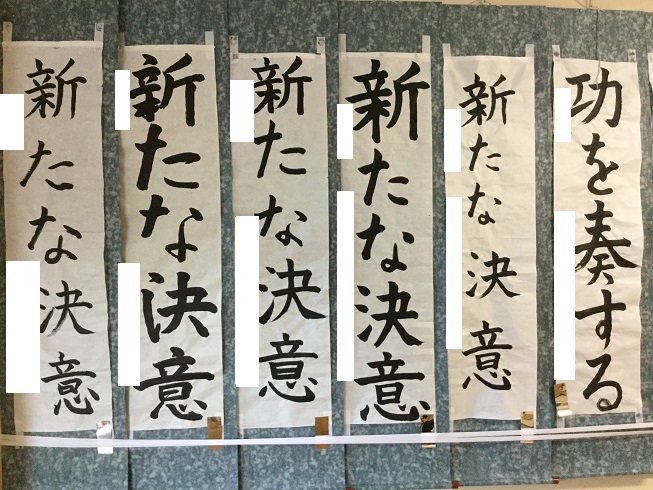 功を奏する
新たな決意
新たな決意
新たな決意
新たな決意
新たな決意